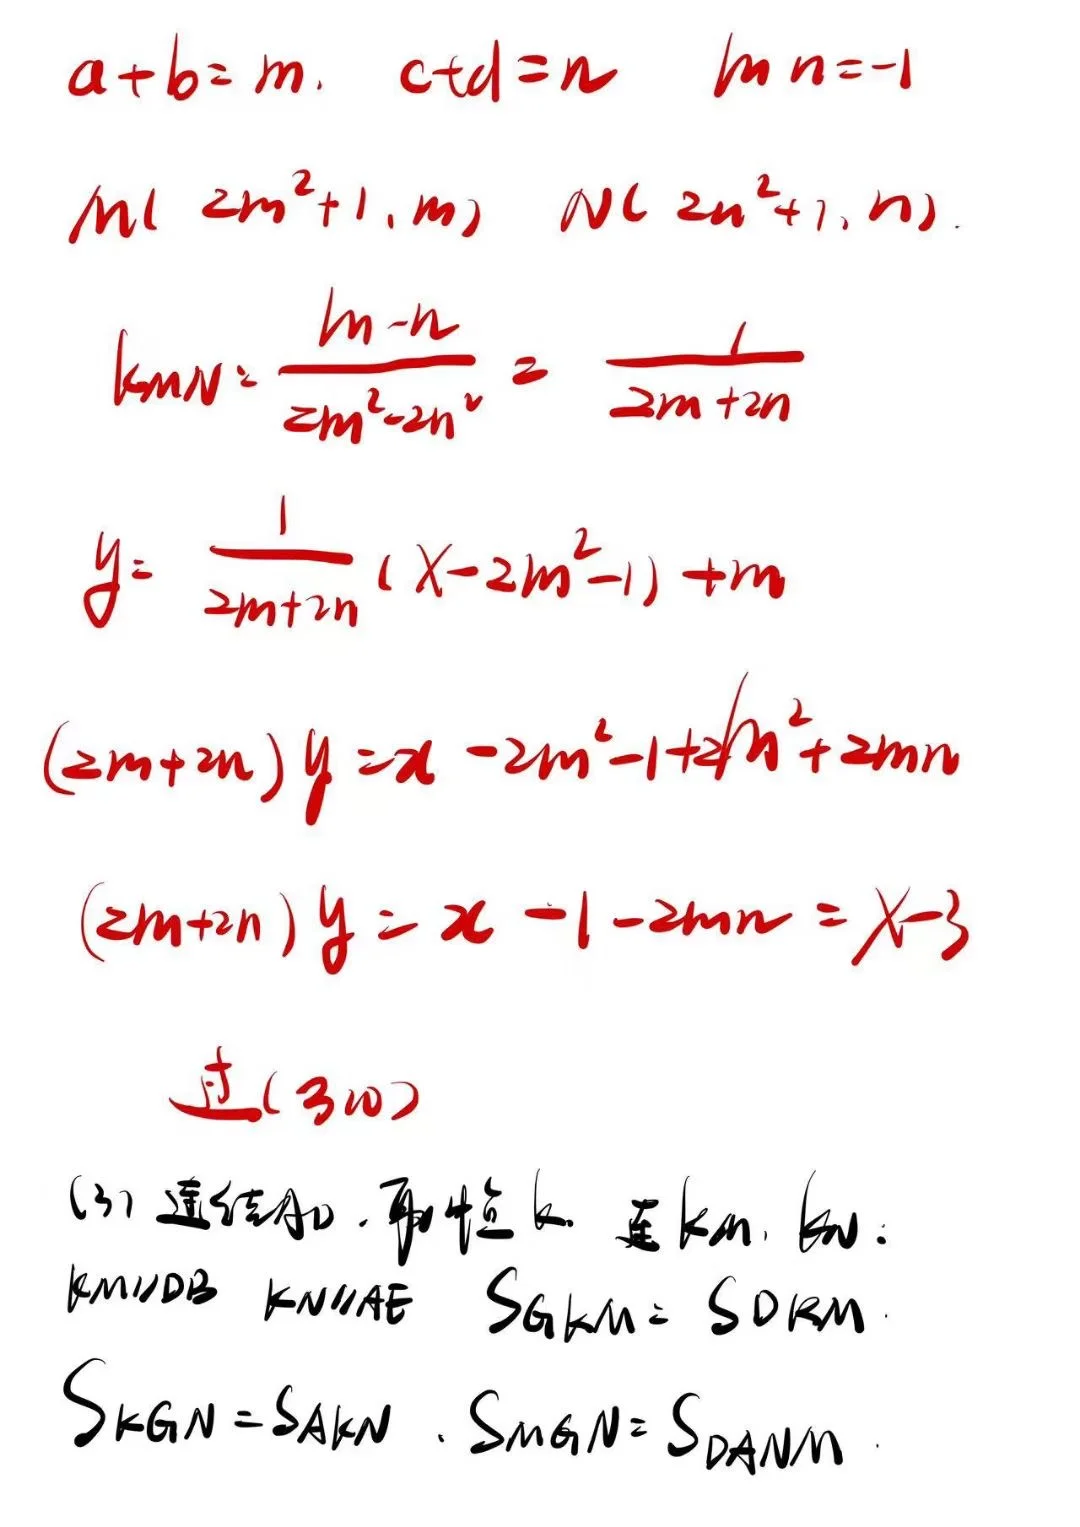 a+b=m. c+d=n mn=-1
M( 2m²+1, m) N( 2n²+1, n).
kMN= \frac{m-n}{2m²-2n²} = \frac{1}{2m+2n}
y= \frac{1}{2m+2n} (x-2m²-1) +m
(2m+2n) y =x -2m²-1+2m²+2mn
(2m+2n) y = x -1-2mn = x-3
过(3,0)
(3) 连结AD.取中点k. 连kM. kN:
KM//DB KN//AE SGKM= SDKM.
SKGN=SAKN. SMGN=SDANM.